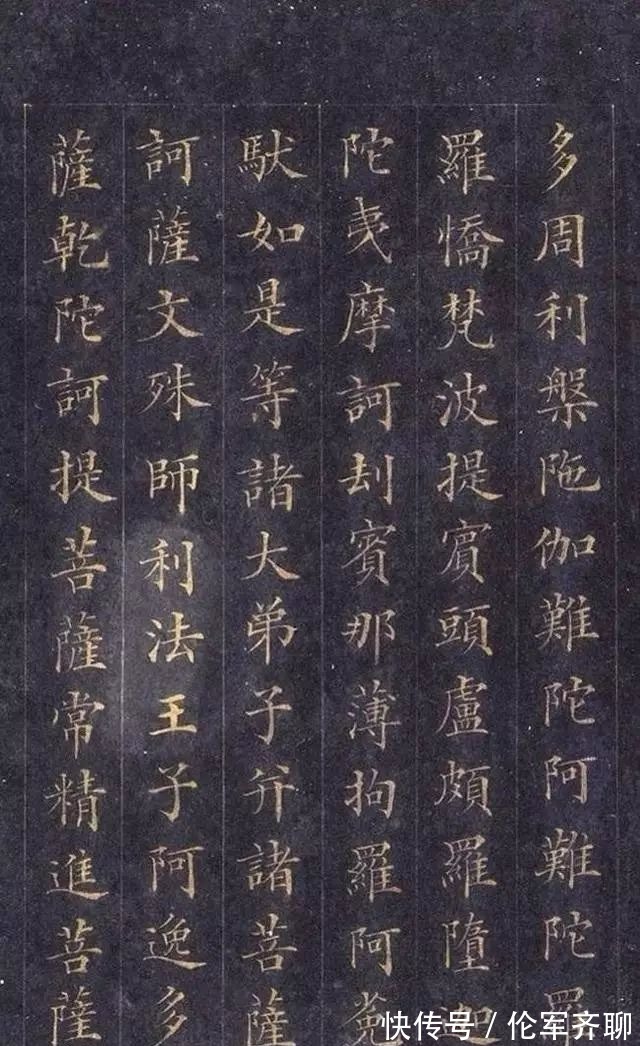 多周利槃陁伽難陀阿難陀羅
羅憍梵波提賓頭盧頗羅墮迦
陀夷摩訶刧賓那薄拘羅阿㝹
馱如是等諸大弟子并諸菩薩
訶薩文殊師利法王子阿逸多
薩乾陀訶提菩薩常精進菩薩
快传号 / 伦军齐聊